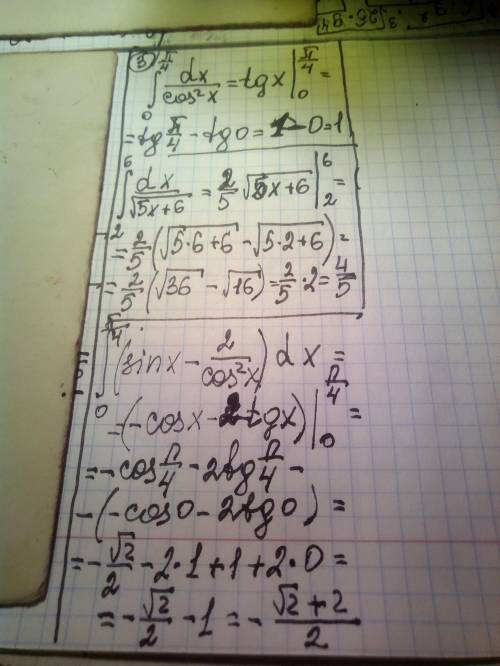 ③ ∫₀^(π/4) dx/cos²x = tgx |₀^(π/4) =
= tg π/4 - tg0 = 1-0=1
∫₂⁶ dx/√(5x+6) = 2/5 √(5x+6) |₂⁶ =
= 2/5 (√(5·6+6) - √(5·2+6)) =
= 2/5 (√36 - √16) = 2/5 · 2 = 4/5
= ∫₀^(π/4) (sinx - 2/cos²x) dx =
= (-cosx - 2tgx) |₀^(π/4) =
= -cos π/4 - 2tg π/4 -
-(-cos0 - 2tg0) =
= -√2/2 - 2·1+1+2·0 =
= -√2/2 - 1 = - (√2+2)/2